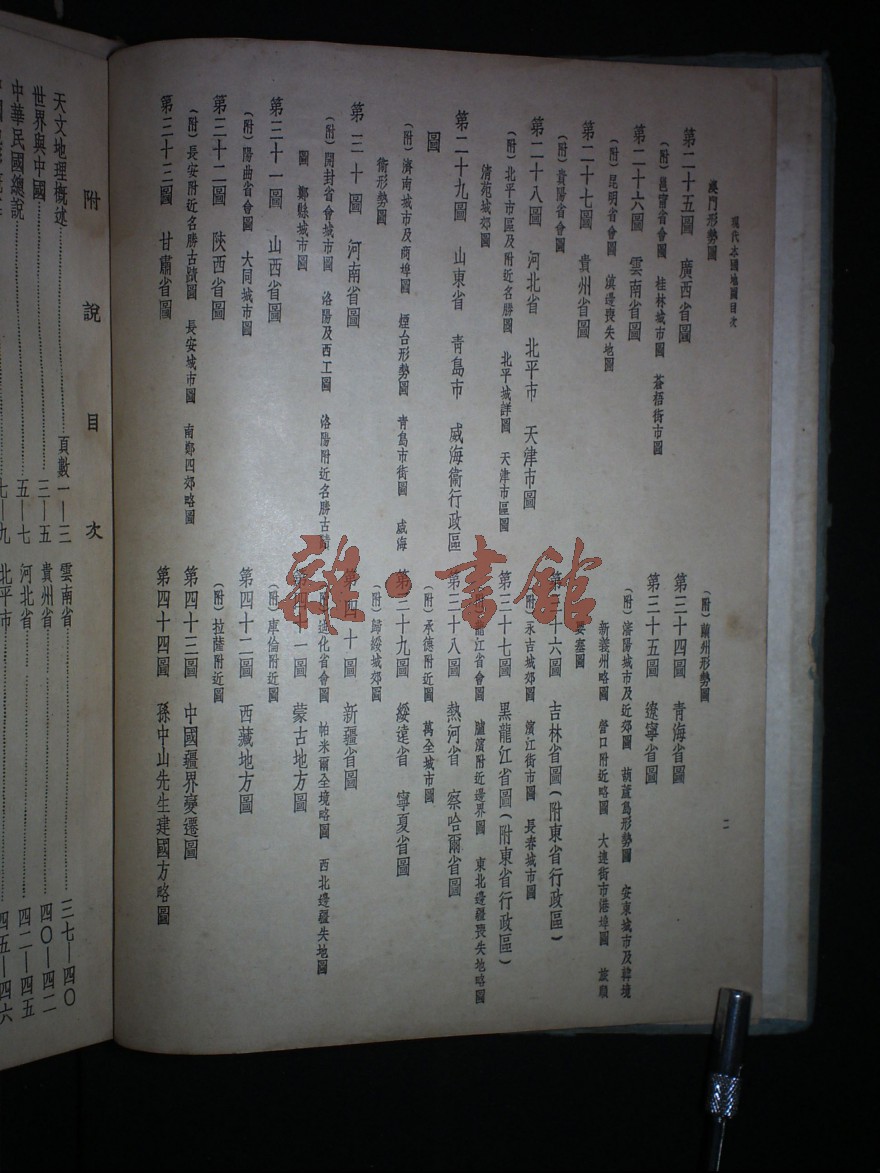 現代本國地圖目次
澳門形勢圖
第二十五圖　廣西省圖
(附)邕甯省會圖　桂林城市圖　蒼梧街市圖
第二十六圖　雲南省圖
(附)昆明省會圖　滇邊喪失地圖
第二十七圖　貴州省圖
(附)貴陽省會圖
第二十八圖　河北省　北平市　天津市圖
(附)北平市區及附近名勝圖　北平城詳圖　天津市區圖
清苑城郊圖
第二十九圖　山東省　青島市　威海衞行政區
圖
(附)濟南城市及商埠圖　煙台形勢圖　青島市街圖　威海
衞形勢圖
第三十圖　河南省圖
(附)開封省會城市圖　洛陽及西工圖　洛陽附近名勝古蹟
圖　鄭縣城市圖
第三十一圖　山西省圖
(附)陽曲省會圖　大同城市圖
第三十二圖　陝西省圖
(附)長安附近名勝古蹟圖　長安城市圖　南鄭四郊略圖
第三十三圖　甘肅省圖
(附)蘭州形勢圖
第三十四圖　青海省圖
第三十五圖　遼寧省圖
(附)瀋陽城市及近郊圖　葫蘆島形勢圖　安東城市及韓境
新義州略圖　營口附近略圖　大連街市港埠圖　旅順
要塞圖
第三十六圖　吉林省圖(附東省行政區)
(附)永吉城郊圖　濱江街市圖　長春城市圖
第三十七圖　黑龍江省圖(附東省行政區)
龍江省會圖　臚濱附近邊界圖　東北邊疆喪失地略圖
第三十八圖　熱河省　察哈爾省圖
(附)承德附近圖　萬全城市圖
第三十九圖　綏遠省　寧夏省圖
(附)歸綏城郊圖
第四十圖　新疆省圖
迪化省會圖　帕米爾全境略圖　西北邊疆失地圖
第四十一圖　蒙古地方圖
(附)庫倫附近圖
第四十二圖　西藏地方圖
(附)拉薩附近圖
第四十三圖　中國疆界變遷圖
第四十四圖　孫中山先生建國方略圖
二
附說目次
天文地理概述……頁數一—三
世界與中國……三—五
中華民國總說……五—七
七—九
雲南省……三七—四〇
貴州省……四〇—四二
河北省……四二—四五
北平市……四五—四六
雜·書館